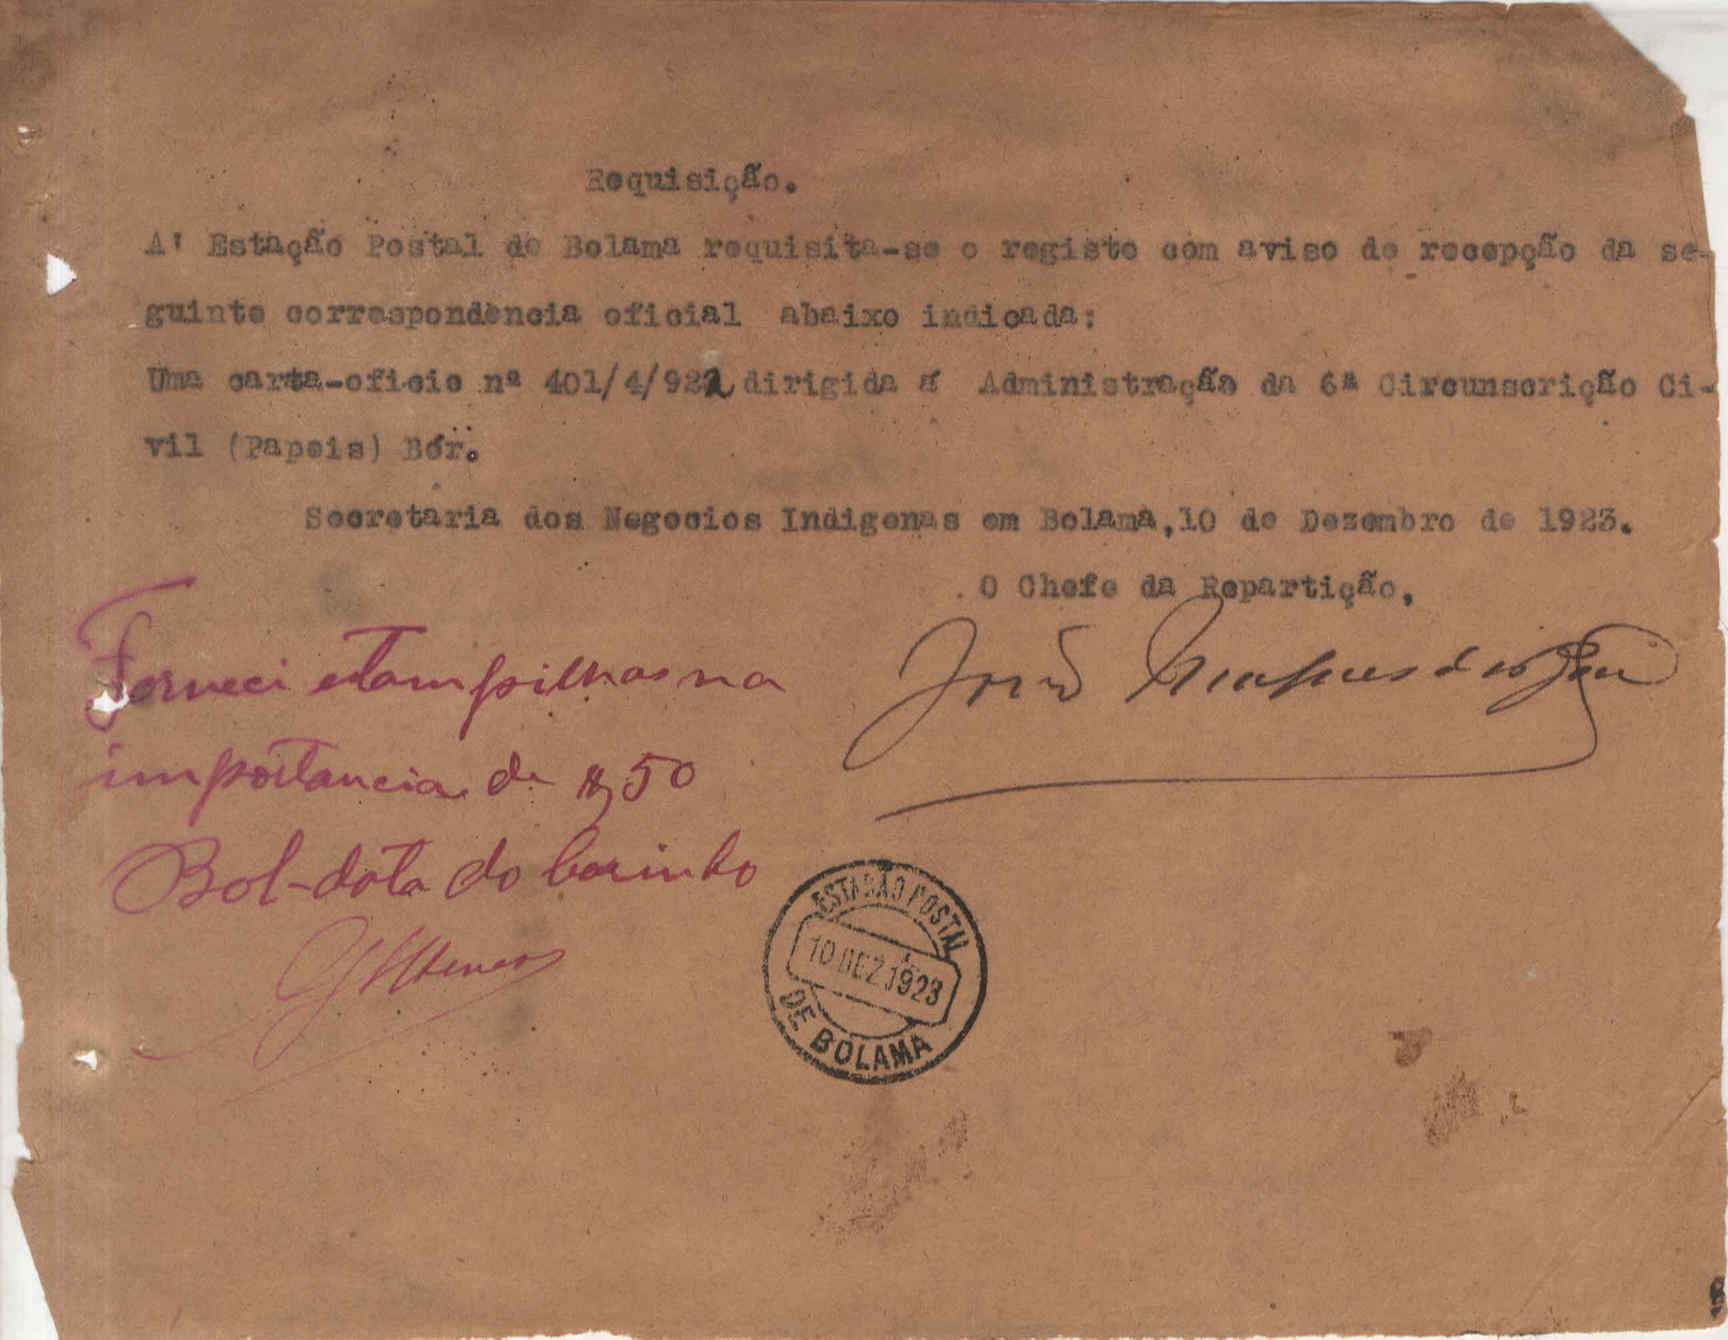 Requisição.
A' Estação Postal de Bolama requisita-se o registo com aviso de recepção da se-
guinte correspondència oficial abaixo indicada:
Uma carta-oficio nª 401/4/922 dirigida á Administração da 6ª Circunscrição Ci-
vil (Papeis) Bór.
Secretaria dos Negocios Indigenas em Bolama,10 de Dezembro de 1923.
O Chefe da Repartição,
João
Forneci estampilhas na
importancia de $50
Bol-data do carimbo
ESTAÇÃO POSTAL
10 DEZ.1923
DE BOLAMA